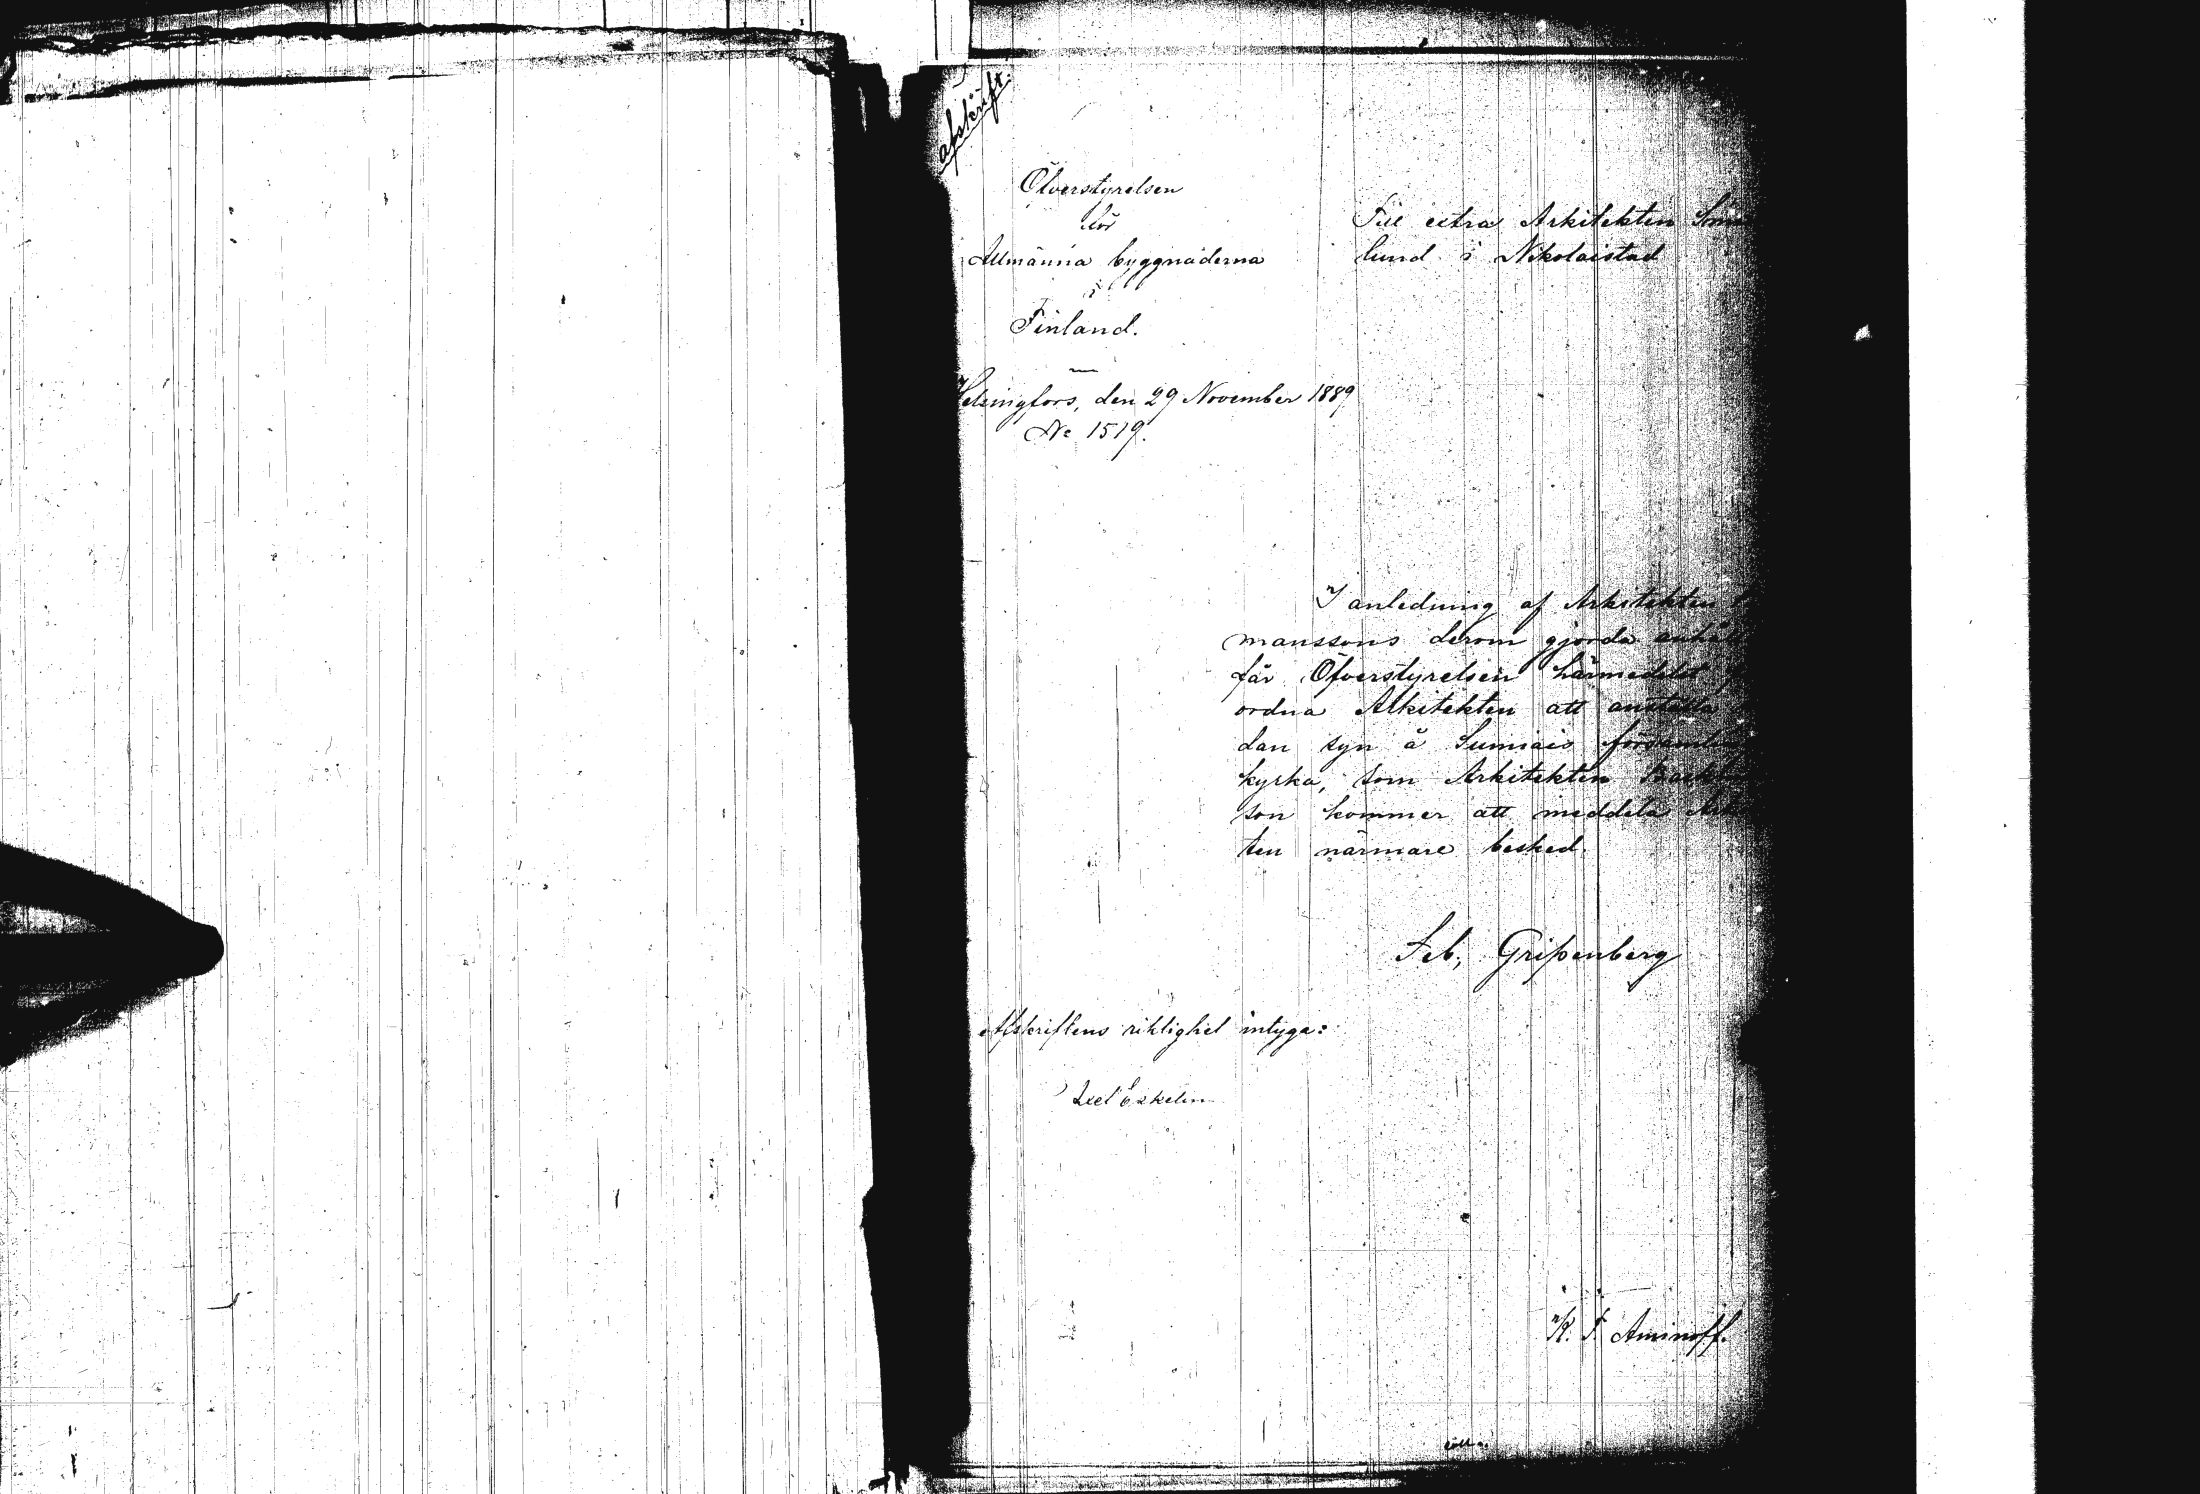 afskrift.
Öfverstyrelsen
för
Allmänna byggnaderna
i
Finland.
Helsingfors, den 29 November 1889
No 1519.
Till extra Arkitekten
lund i Nikolaistad
I anledning af Arkitekten
manssons derom gjorda
får Öfverstyrelsen härmedelst
ordna Arkitekten att anställa
dan syn å Sumiais
kyrka, som Arkitekten
son kommer att meddela
ten närmare besked.
Seb. Gripenberg
K. F. Aminoff.
Afskriftens riktighet intyga:
Axel Eskelin